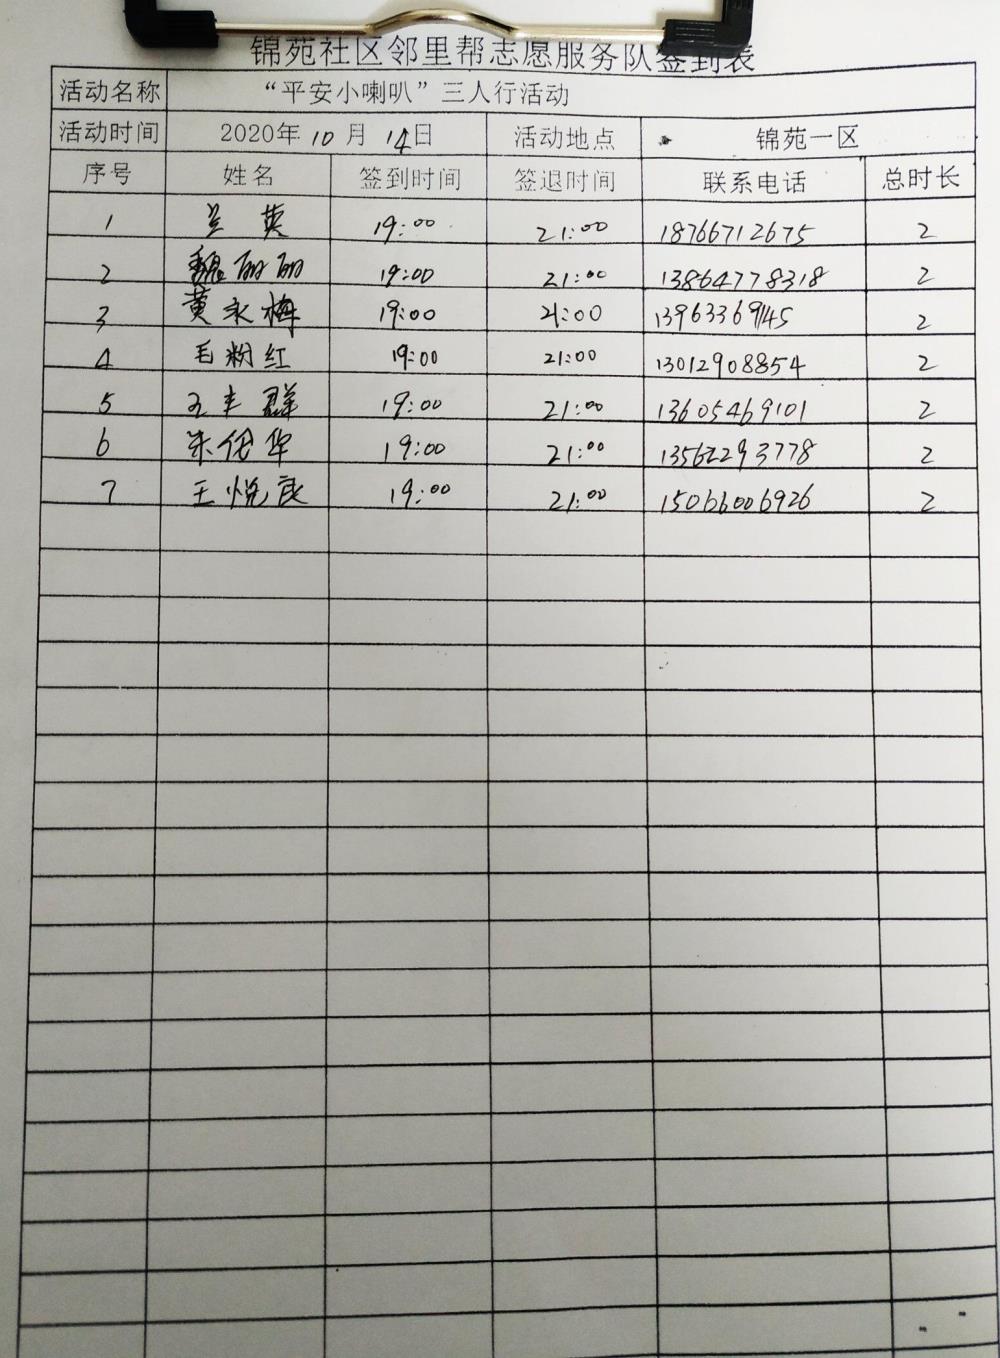 锦苑社区邻里帮志愿服务队签到表
活动名称 “平安小喇叭”三人行活动
活动时间 2020年 10 月 14日 活动地点 锦苑一区
序号 姓名 签到时间 签退时间 联系电话 总时长
1 兰英 19:00 21:00 18766712675 2
2 魏丽丽 19:00 21:00 13864778318 2
3 黄永梅 19:00 21:00 13963369145 2
4 毛粉红 19:00 21:00 13012908854 2
5 王丰群 19:00 21:00 13605469101 2
6 朱伦华 19:00 21:00 13562293778 2
7 王悦良 19:00 21:00 15066006926 2